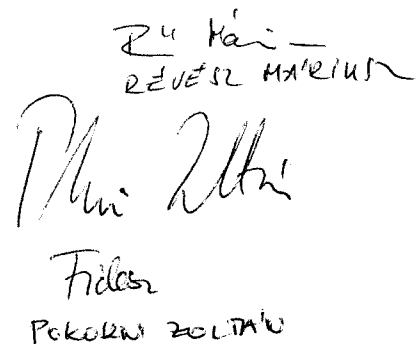 RÉVÉSZ MÁRIUSZ
Zoltán
Fidesz
POKORNI ZOLTÁN